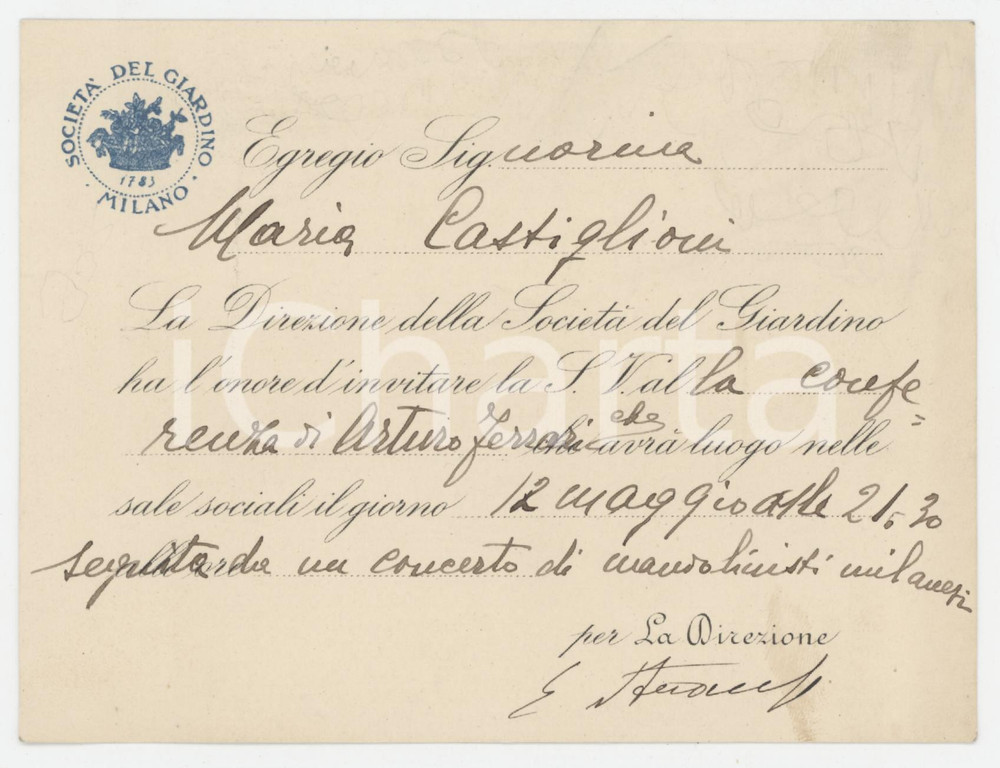 SOCIETA' DEL GIARDINO
1783
· MILANO ·
Egregio Signorina
Maria Castiglioni
La Direzione della Società del Giardino
ha l'onore d'invitare la S. V. alla confe=
renza di Arturo Ferrari che avrà luogo nelle
sale sociali il giorno 12 maggio alle 21,30
seguita da un concerto di mandolinisti milanesi
per La Direzione
E
iCharta